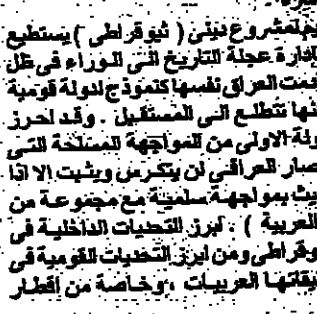 يم لمشروع ديني ( ثيوقراطى ) يستطيع
إدارة عجلة التاريخ الى الوراء فى ظل
دمت العراق نفسها كنموذج لدولة قومية
نها تتطلع الى المستقبل . وقد احرز
ولة الاولى من المواجهة المسلحة التى
صار العراقى لن يتكرس ويثبت إلا اذا
يث بمواجهة سلمية مع مجموعة من
العربية ) . ابرز التحديات الداخلية فى
وقراطى ومن ابرز التحديات القومية فى
يقاتها العربيات ، وخاصة من أقطار